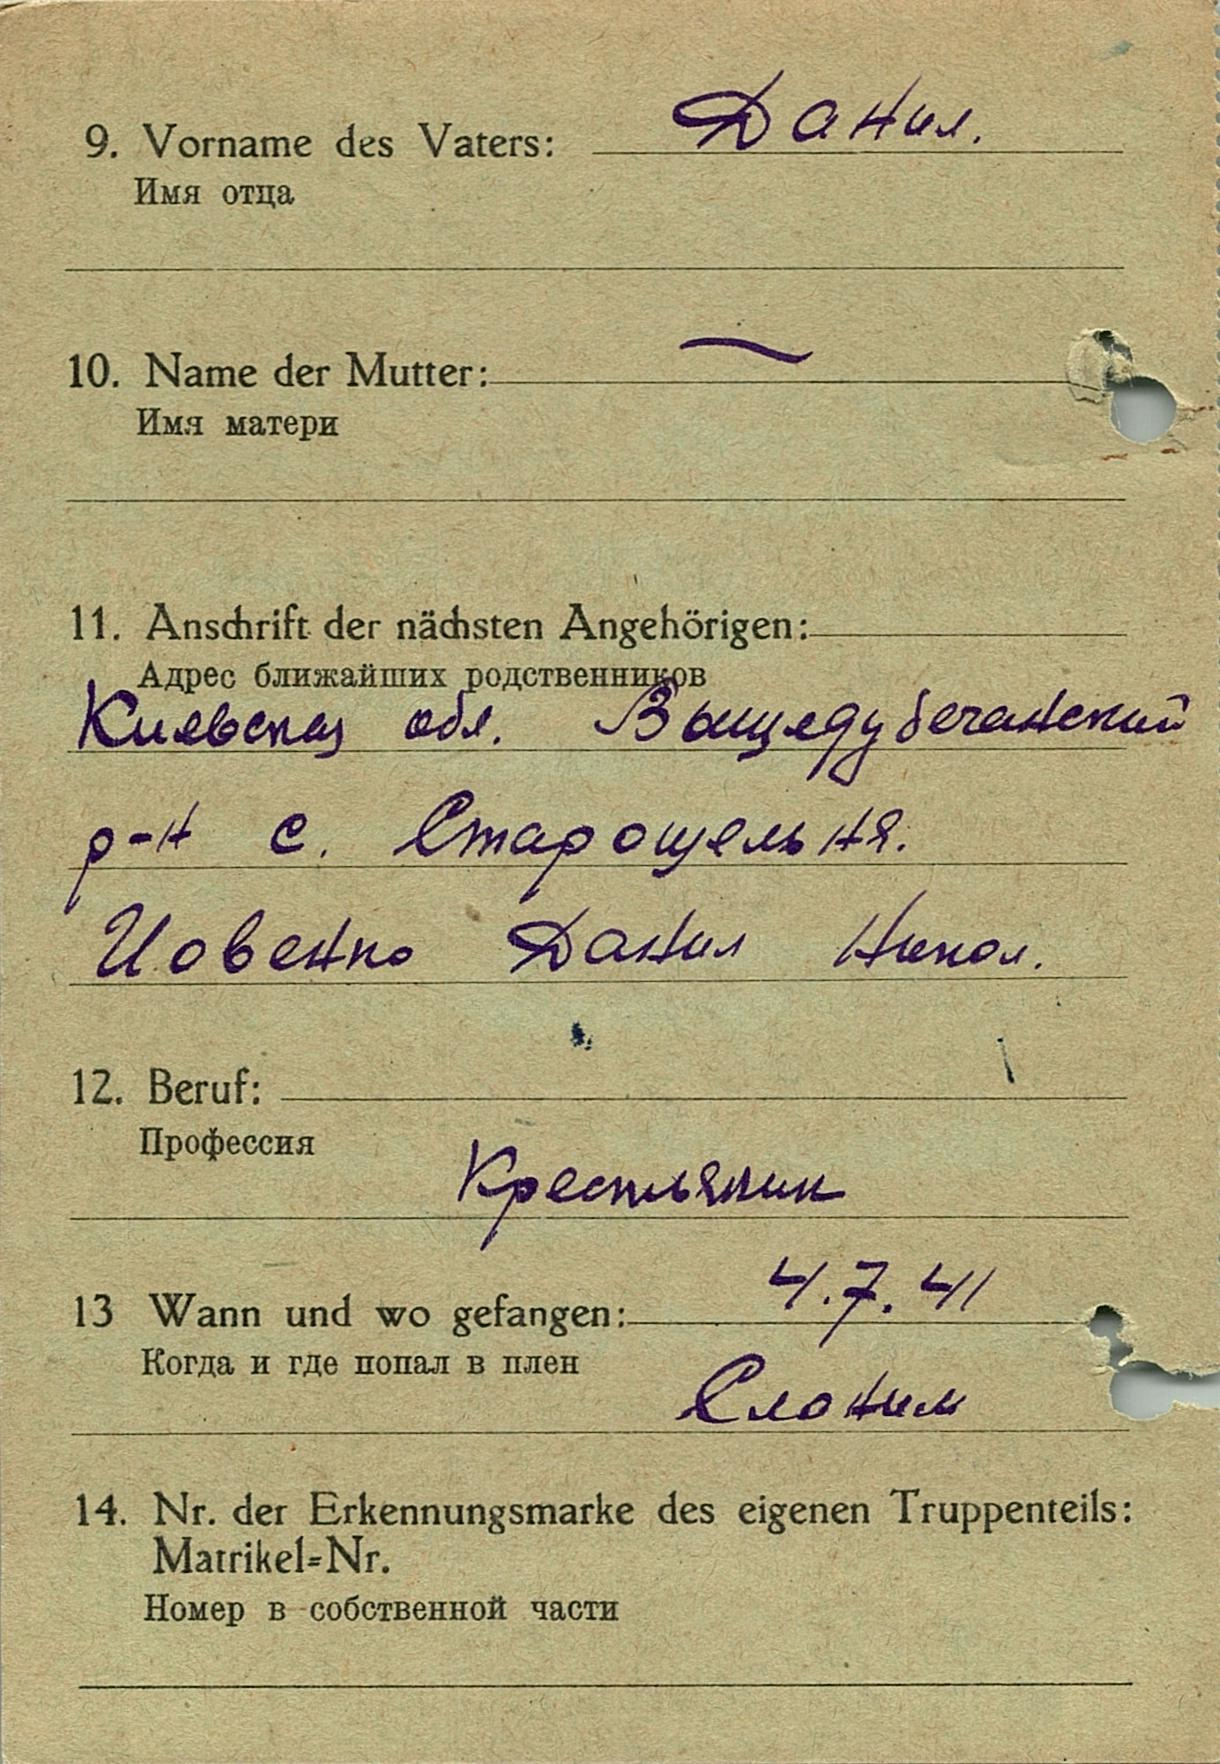 9. Vorname des Vaters: Данил.
Имя отца
10. Name der Mutter: —
Имя матери
11. Anschrift der nächsten Angehörigen:
Адрес ближайших родственников
Киевская обл. Выщедубечанский
р-н с. Старощельня.
Иовенко Данил Никол.
12. Beruf:
Профессия
Крестьянин
13 Wann und wo gefangen: 4.7.41
Когда и где попал в плен
Слоним
14. Nr. der Erkennungsmarke des eigenen Truppenteils:
Matrikel=Nr.
Номер в собственной части